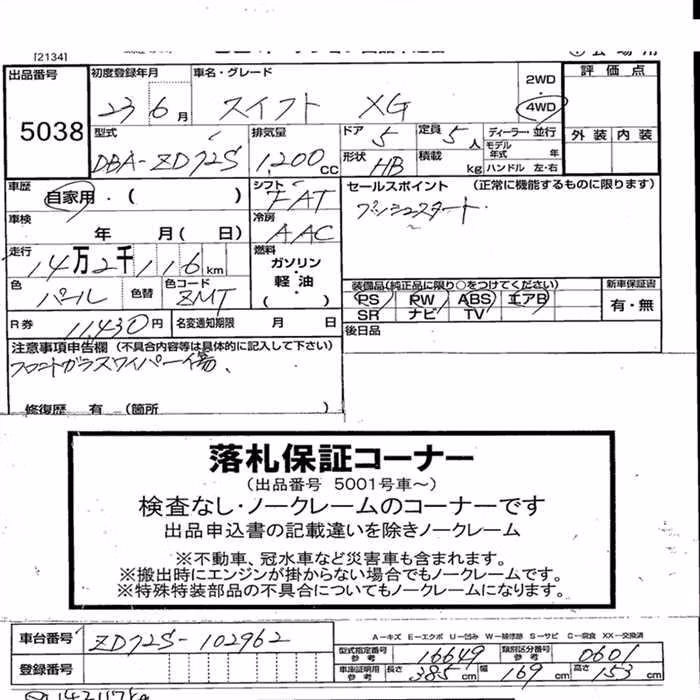 [2134]
出品番号 初度登録年月 車名・グレード 2WD 評価点
5038 23 6月 スイフト XG 4WD
型式 排気量 ドア 定員 ディーラー・並行 外装 内装
DBA-ZD72S 1,200cc 5 5人 モデル年式 年
形状 HB 積載 kg ハンドル 左・右
車歴 自家用・( ) シフト FAT セールスポイント (正常に機能するものに限ります)
車検 年 月( 日) 冷房 AAC プッシュスタート
走行 14万2千116km 燃料 ガソリン・軽油・( )
色 パール 色替 色コード ZMT
装備品(純正品に限り○をつけてください) 新車保証書
PS PW ABS エアB 有・無
SR ナビ TV
R券 11,430円 名変通知期限 月 日 後日品
注意事項申告欄 (不具合内容等は具体的に記入して下さい)
フロントガラスワイパー傷、
修復歴 有 (箇所 )
落札保証コーナー
(出品番号 5001号車～)
検査なし・ノークレームのコーナーです
出品申込書の記載違いを除きノークレーム
※不動車、冠水車など災害車も含まれます。
※搬出時にエンジンが掛からない場合でもノークレームです。
※特殊特装部品の不具合についてもノークレームになります。
車台番号 ZD72S-102962
A－キズ E－エクボ U－凹み W－補修跡 S－サビ C－腐食 XX－交換済
型式指定番号参考 16649 類別区分番号参考 0601
登録番号
車庫証明用参考 長さ 385cm 幅 169cm 高さ 153cm